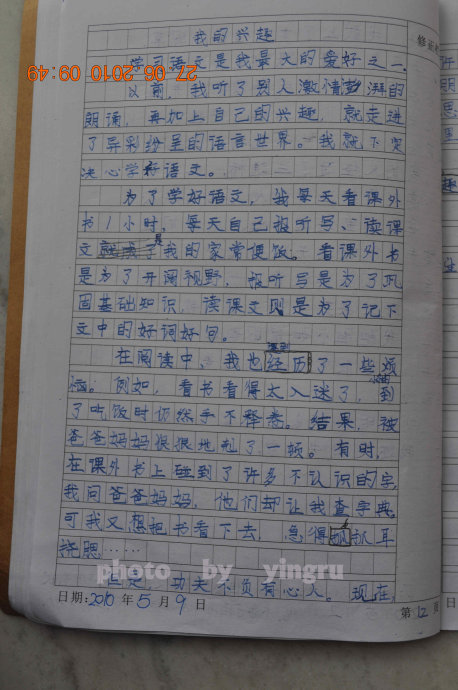 我的兴趣
学习语文是我最大的爱好之一。
以前，我听了别人激情澎湃的
朗诵，再加上自己的兴趣，就走进
了异彩纷呈的语言世界。我就下定
决心学好语文。
为了学好语文，我每天看课外
书1小时，每天自己报听写、读课
文是我的家常便饭。看课外书
是为了开阔视野，报听写是为了巩
固基础知识，读课文则是为了记下
文中的好词好句。
遇到
在阅读中，我也经历了一些烦
恼。例如，看书看得太入迷了，到
了吃饭时仍然手不释卷。结果，被
爸爸妈妈狠狠地剋了一顿。有时，
在课外书上碰到了许多不认识的字，
我问爸爸妈妈，他们却让我查字典，
可我又想把书看下去，急得抓抓耳
挠腮……
photo by yingru
可是，功夫不负有心人。现在，
日期：2010年5月9日
第12页
27.06.2010 09:49